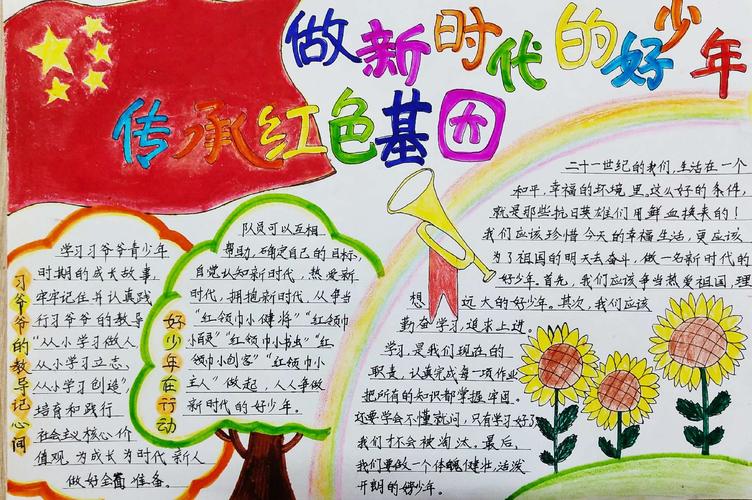 做新时代的好少年
传承红色基因
习爷爷的教导记心间
学习习爷爷青少年
时期的成长故事,
牢牢记住并认真践
行习爷爷的教导
“从小学习做人
从小学习立志
从小学习创造”,
培育和践行
社会主义核心价
值观,为成长为时代新人
做好全面准备。
好少年在行动
队员可以互相
帮助,确定自己的目标,
自觉认知新时代,热爱新
时代,拥抱新时代,从争当
“红领巾小健将”“红领巾
小百灵”“红领巾小书虫”“红
领巾小创客”“红领巾小
主人”做起,人人争做
新时代的好少年。
二十一世纪的我们,生活在一个
和平,幸福的环境里,这么好的条件,
就是那些抗日英雄们用鲜血换来的!
我们应该珍惜今天的幸福生活,更应该
为了祖国的明天去奋斗,做一名新时代的
好少年。首先,我们应该争当热爱祖国,理
想远大的好少年。其次,我们应该
勤奋学习,追求上进。
学习,是我们现在的
职责,认真完成每一项作业
把所有的知识都掌握牢固。
还要学会不懂就问,只有学习好了
我们才不会被淘汰,最后,
我们要做一个体魄健壮,活泼
开朗的好少年。